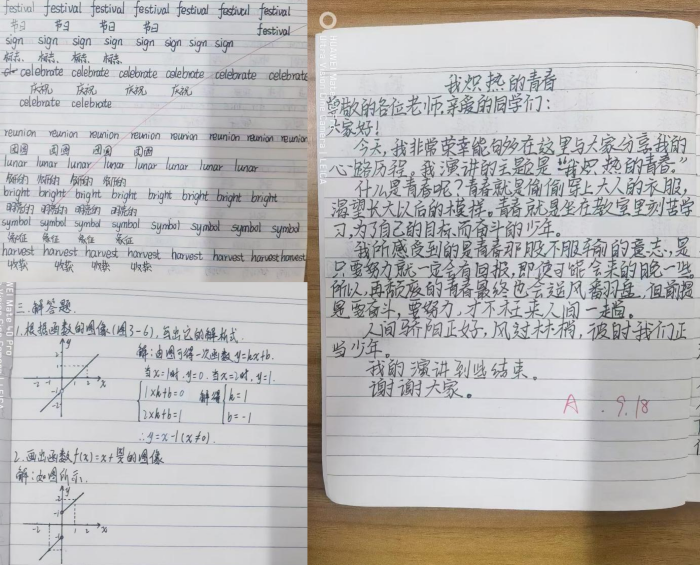 festival festival festival festival festival festival festival
节日 节日 节日 节日 festival
sign sign sign sign sign sign sign
标志 标志 标志 标志
celebrate celebrate celebrate celebrate celebrate celebrate
庆祝 庆祝 庆祝 庆祝
celebrate celebrate
reunion reunion reunion reunion reunion reunion reunion
团圆 团圆 团圆 团圆
lunar lunar lunar lunar lunar lunar lunar
bright bright bright bright bright bright bright
明亮的 明亮的 明亮的 明亮的
symbol symbol symbol symbol symbol symbol symbol
象征 象征 象征 象征
harvest harvest harvest harvest harvest harvest harvest
收获 收获 收获 收获
三.解答题.
1.根据函数的图像(图3-6),写出它的解析式.
解:由图可得一次函数y=kx+b.
当x=1时,y=0.当x=2时,y=1.
1×k+b=0 解得 k=1
2×k+b=1 b=-1
∴y=x-1(x≠0).
2.画出函数f(x)=x+的图像
解:如图所示.
我炽热的青春
尊敬的各位老师,亲爱的同学们:
大家好!
今天,我非常荣幸能够在这里与大家分享我的
心路历程。我演讲的主题是“我炽热的青春。”
什么是青春呢?青春就是偷偷穿上大人的衣服,
渴望长大以后的模样。青春就是坐在教室里刻苦学
习,为了自己的目标而奋斗的少年。
我所感受到的是青春那股不服输的意志,是
只要努力就一定会有回报,即使可能会来的晚一些
所以,再颓废的青春最终也会迎风翻盘.但前提
是要奋斗,要努力,才不枉来人间一走回。
人间骄阳正好,风过林梢,彼时我们正
当少年。
我的演讲到此结束。
谢谢大家。
A.9.18